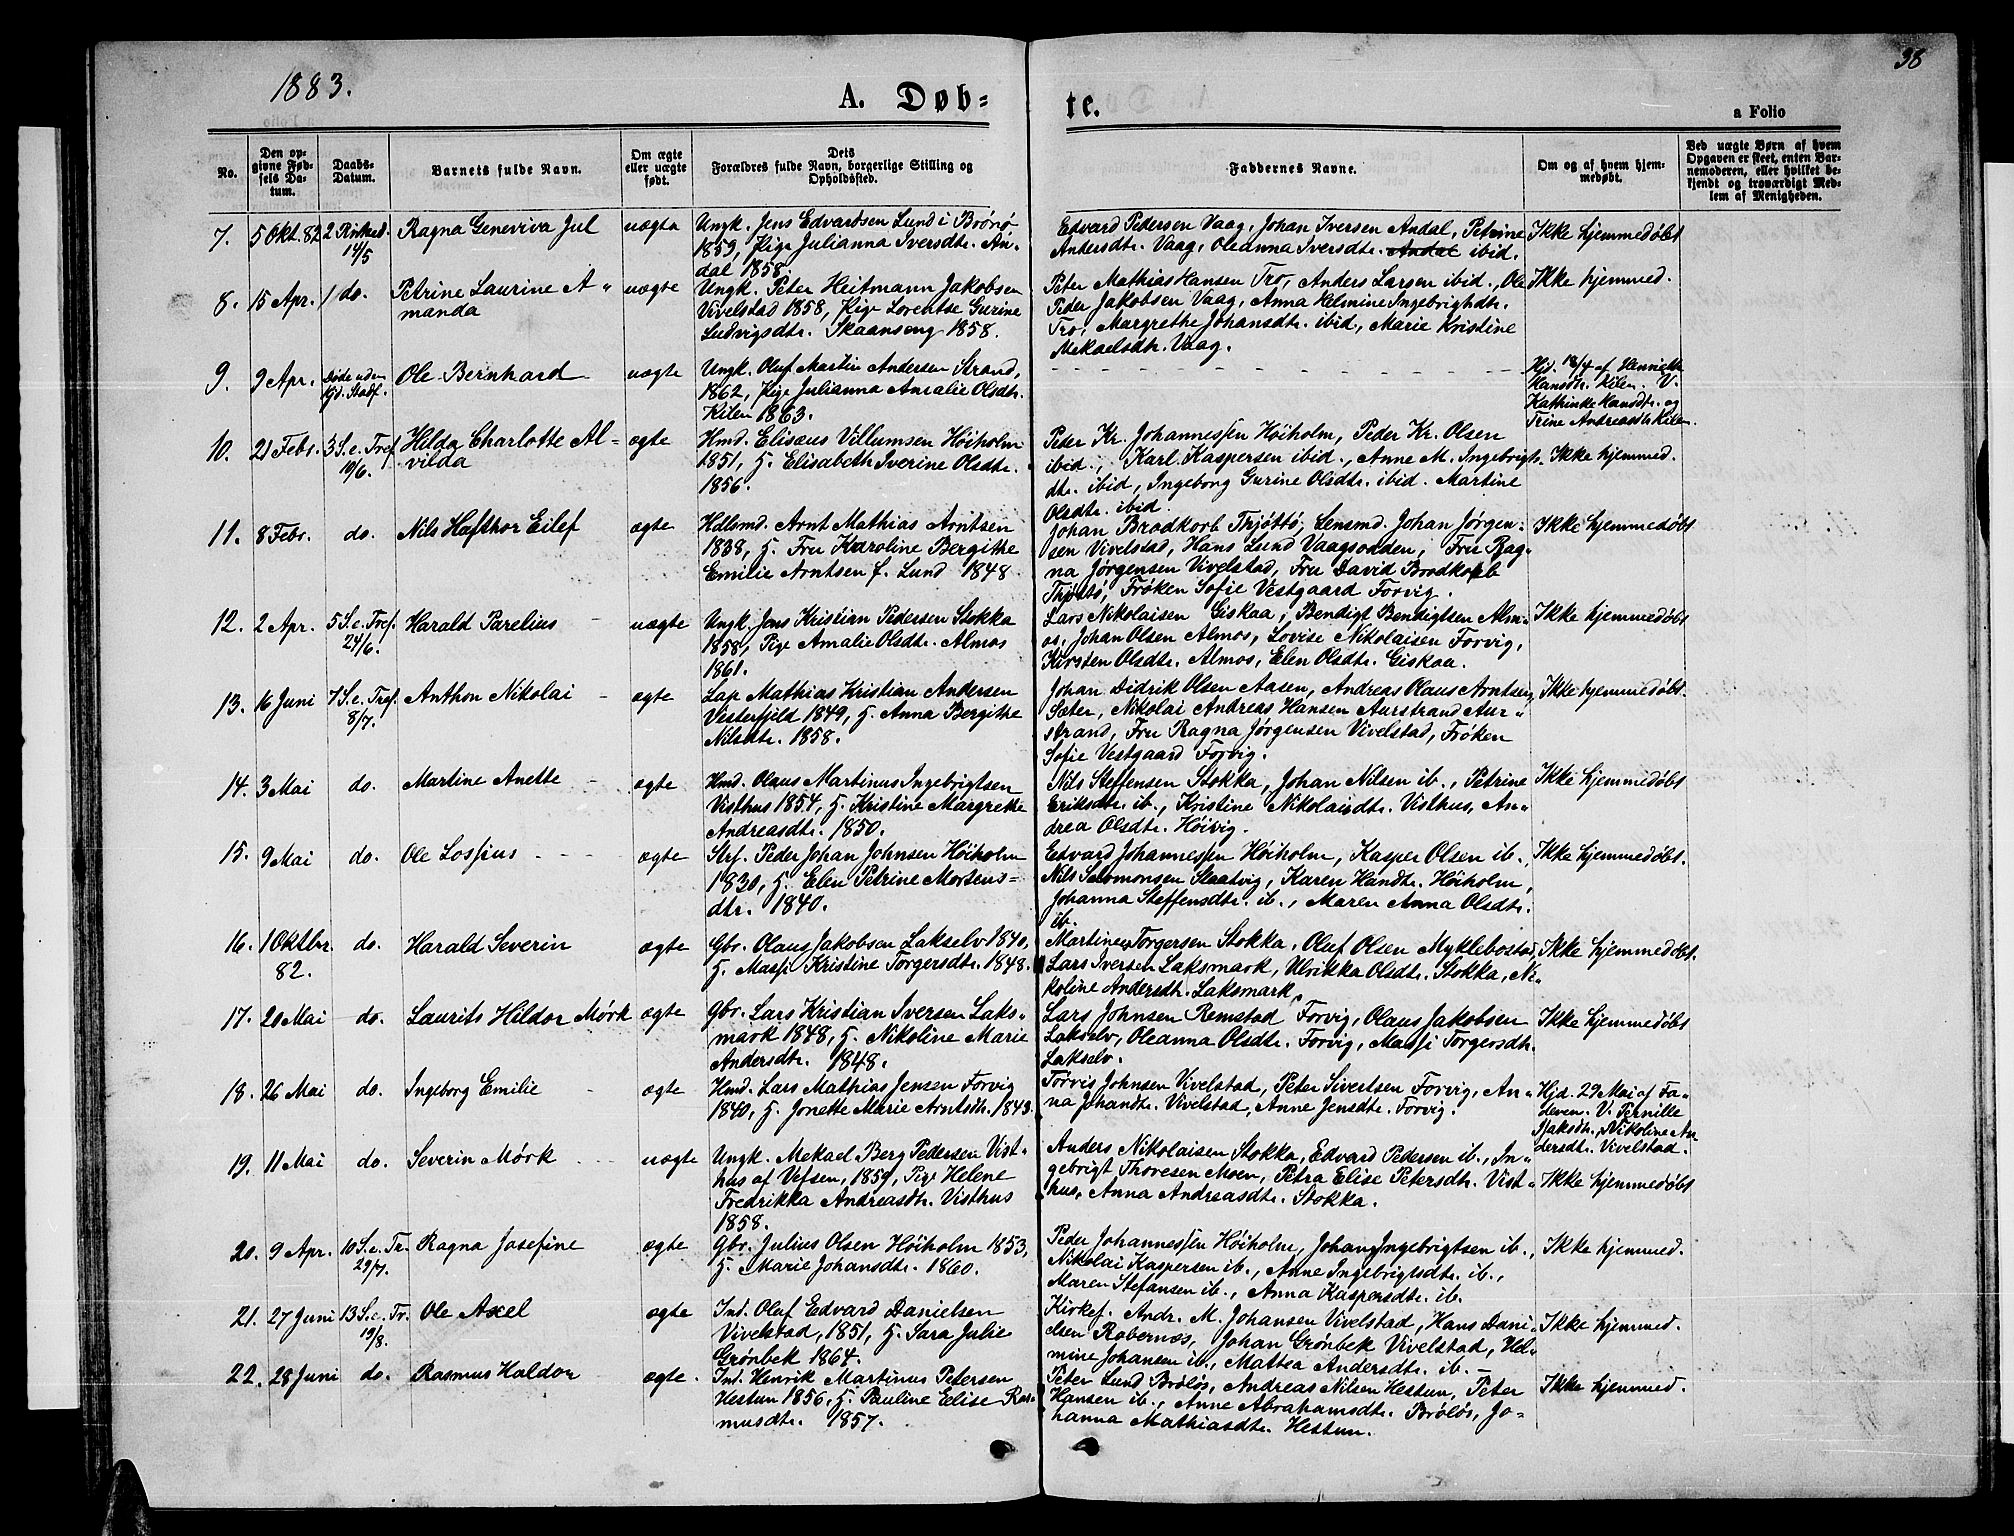 38
1883.
A. Døb=
te.
a Folio
No.
Den op=
givne Fød=
sels Da=
tum.
Daabs=
Datum.
Barnets fulde Navn.
Om ægte
eller uægte
født.
Dets
Forældres fulde Navn, borgerlige Stilling og
Opholdssted.
Faddernes Navne.
Om og af hvem hjem=
medøbt.
Ved uægte Børn af hvem
Opgaven er skeet, enten Bar=
nemoderen, eller hvilket be=
kjendt og troværdigt Med=
lem af Menigheden.
7. 5 Okt. 82 2 Pintsed. 14/5 Ragna Geneviva Jul uægte
Ungk. Jens Edvardsen Lund i Brönö
1859, Pige Julianna Iversdtr. An-
dal 1858
Edvard Pedersen Vaag, Johan Iversen Andal, Petrine
Andersdtr. Vaag, Oleanna Iversdtr. Andal ibid.
Ikke hjemmedøbt
8. 15 Apr. / do. Petrine Laurine A-
manda
uægte
Ungk. Peter Heitmann Jakobsen
Vivelstad 1858, Pige Lorentse Gurine
Ludvigsdtr. Skaanseng 1858.
Peter Mathias Hansen Tro, Anders Larsen ibid., Ole
Peder Jakobsen Vaag, Anna Helmine Ingebrigtsdtr.
Tro, Margrethe Johansdtr. ibid., Marie Kristine
Mekaelsdtr. Vaag.
Ikke hjemmed.
9. 9 Apr. Døde uden
Hjd. Stadf.
Ole Bernhard uægte
Ungk. Oluf Martin Andersen Strand,
1862, Pige Julianna Amalie Olsdtr.
Kilen 1863.
Hjd. 18/4 af Henriette
Hansdtr. Kilen. V.
Kathinke Hansdtr. og
Trine Andreasdtr. Kilen.
10. 21 Febr. 3 S. e. Tref. 10/6. Hilda Charlotte Al-
vilda
ægte
Hmd. Elisæus Villumsen Höiholm
1851, H. Elisabeth Iverine Olsdtr.
1856.
Peder Kr. Johannessen Höiholm, Peder Kr. Olsen
ibid., Karl Kaspersen ibid., Anne M. Ingebrigts-
dtr. ibid, Ingeborg Gurine Olsdtr. ibid. Martine
Olsdtr. ibid.
Ikke hjemmed.
11. 8 Febr. do. Nils Hafthor Eilef ægte
Hdlsmd. Arnt Mathias Arntsen
1838, H. Fru Karoline Bergithe
Emilie Arntsen f. Lund 1848.
Johan Brodkorb Thjöttö, Lensmd. Johan Jörgen-
sen Vivelstad, Hans Lund Vaagsodden, Fru Rag-
na Jörgensen Vivelstad, Fru David Brodkorb
Thjöttö, Fröken Sofie Vestgaard Forvig.
Ikke hjemmedøbt
12. 2 Apr. 5 S. e. Tref. 24/6. Harald Parelius uægte
Ungk. Jens Kristian Pedersen Stokka
1858, Pige Amalie Olsdtr. Almos
1861.
Lars Nikolaisen Giskaa, Bendigt Bendigtsen Alm-
os, Johan Olsen Almos, Lovise Nikolaisen Forvig,
Kirsten Olsdtr. Almos, Elen Olsdtr. Giskaa.
Ikke hjemmedøbt
13. 16 Juni 7 S. e. Tref. 8/7. Anthon Nikolai ægte
Lap Mathias Kristian Andersen
Vesterfjeld 1849, H. Anna Bergithe
Nilsdtr. 1858.
Johan Didrik Olsen Aasen, Andreas Olaus Arntsen
Sæter, Nikolai Andreas Hansen Aurstrand Aur-
strand, Fru Ragna Jörgensen Vivelstad, Fröken
Sofie Vestgaard Forvig.
Ikke hjemmedøbt.
14. 3 Mai do. Martine Anette ægte
Hmd. Olaus Martinus Ingebrigtsen
Visthus 1854, H. Kristine Margrethe
Andreasdtr. 1850.
Nils Steffensen Stokka, Johan Nilsen ib., Petrine
Eriksdtr. ib., Kristine Nikolaisdtr. Visthus, An-
drea Olsdtr. Höivig.
Ikke hjemmedøbt
15. 9 Mai do. Ole Lossius ægte
Strf. Peder Johan Johnsen Höiholm
1830, H. Elen Petrine Mortens-
dtr. 1840.
Edvard Johannessen Höiholm, Kasper Olsen ib.,
Nils Salomonsen Staatvig, Karen Handtr. Höiholm,
Johanna Steffensdtr. ib., Maren Anna Olsdtr.
ib.
Ikke hjemmedøbt.
16. 1 Oktbr.
82.
do. Harald Severin ægte
Gbr. Olaus Jakobsen Lakselv 1840,
H. Massi Kristine Torgersdtr. 1848.
Martines Torgersen Stokka, Oluf Olsen Myklebostad,
Lars Iversen Laksmark, Ulrikka Olsdtr. Stokka, Ni-
koline Andersdtr. Laksmark.
Ikke hjemmedøbt.
17. 20 Mai do. Laurits Hildor Mørk ægte
Gbr. Lars Kristian Iversen Laks-
mark 1848, H. Nikoline Marie
Andersdtr. 1848.
Lars Johnsen Remstad Forvig, Olaus Jakobsen
Lakselv, Oleanna Olsdtr. Forvig, Massi Torgersdtr.
Lakselv.
Ikke hjemmedøbt
18. 26 Mai do. Ingeborg Emilie ægte
Hmd. Lars Mathias Jensen Forvig
1840, H. Jonette Marie Arntsdtr. 1843.
Torvis Johnsen Vivelstad, Peter Sivertsen Forvig, An-
na Johandtr. Vivelstad, Anne Jensdtr. Forvig.
Hjd. 29 Mai af Fa-
deren. V. Pernille
Isaksdtr., Nikoline An-
dersdtr. Vivelstad.
19. 11 Mai do. Severin Mørk uægte
Ungk. Mekael Berg Pedersen Vist-
hus af Vefsen, 1859, Pige Helene
Fredrikka Andreasdtr. Visthus
1858.
Anders Nikolaisen Stokka, Edvard Pedersen ib., In-
gebrigt Thoresen Moen, Petra Elise Petersdtr. Vist-
hus, Anna Andreasdtr. Stokka.
Ikke hjemmedøbt
20. 9 Apr. 10 S. e. Tr. 29/7. Ragna Josefine ægte
Gbr. Julius Olsen Höiholm 1853,
H. Marie Johansdtr. 1860.
Peder Johannessen Höiholm, Johan Ingebrigtsen ib.,
Nikolai Kaspersen ib., Anne Ingebrigtsdtr. ib.,
Maren Stefansen ib., Anna Kaspersdtr. ib.
Ikke hjemmed.
21. 27 Juni 13 S. e. Tr. 19/8. Ole Axel ægte
Ind. Oluf Edvard Danielsen
Vivelstad, 1851, H. Sara Julie
Grönbek 1864.
Kirkes. Andr. M. Johansen Vivelstad, Hans Dani-
elsen Robernæs, Johan Grönbek Vivelstad, Hel-
mine Johansen ib., Mattea Andersdtr. ib.
Ikke hjemmed.
22. 28 Juni do. Rasmus Haldor ægte.
Ind. Henrik Martinus Petersen
Hestun 1856, H. Pauline Elise Ras-
musdtr. 1857.
Peter Lund Bröløs, Andreas Nilsen Hestun, Peter
Hansen ib., Anne Abrahamsdtr. Bröløs, Jo-
hanna Mathiasdtr. Hestun.
Ikke hjemmed.